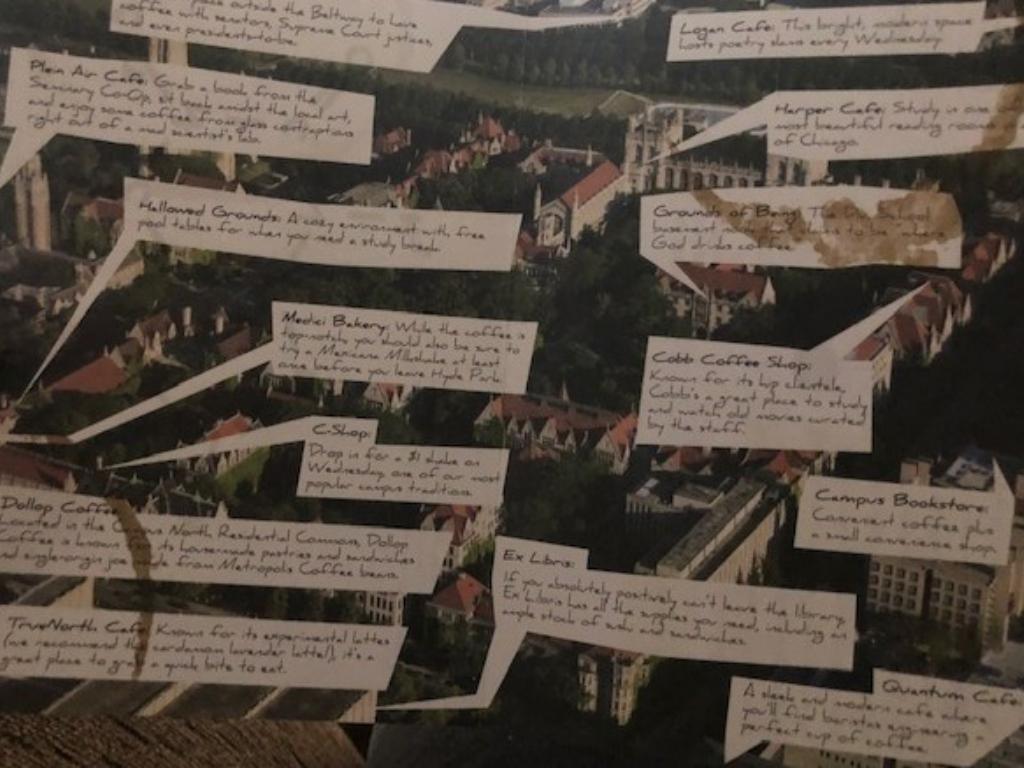 place outside the Beltway to have
coffee with senators, Supreme Court justices,
and even presidents-to-be.
Logan Cafe: This bright, modern space
hosts poetry slams every Wednesday.
Plein Air Cafe: Grab a book from the
Seminary Co-Op, sit back amidst the local art,
and enjoy some coffee from glass contraptions
right out of a mad scientist's lab.
Harper Cafe: Study in one
most beautiful reading rooms
of Chicago.
Hallowed Grounds: A cozy environment with free
pool tables for when you need a study break.
Grounds of Being: The Div School
basement where
God drinks coffee.
Medici Bakery: While the coffee is
top-notch, you should also be sure to
try a Mexicana Milkshake at least
once before you leave Hyde Park.
Cobb Coffee Shop:
Known for its hip clientele,
Cobb's a great place to study
and watch old movies curated
by the staff.
C-Shop:
Drop in for a $1 shake on
Wednesday, one of our most
popular campus traditions.
Campus Bookstore:
Convenient coffee plus
a small convenience shop.
Dollop Coffee:
Located in the Campus North Residential Commons, Dollop
Coffee is known for its housemade pastries and sandwiches
and single-origin joe made from Metropolis Coffee beans.
Ex Libris:
If you absolutely positively can't leave the library,
Ex Libris has all the supplies you need, including an
ample stock of sushi and sandwiches.
TrueNorth Cafe: Known for its experimental lattes
(we recommend the cardamom lavender latte!), it's a
great place to grab a quick bite to eat.
Quantum Cafe:
A sleek and modern cafe where
you'll find baristas engineering a
perfect cup of coffee.